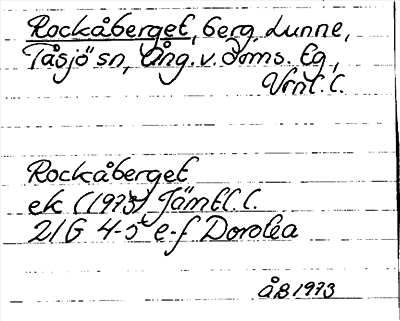 Rockåberget, berg, Lunne,
Tåsjö sn, Ång. v. doms. lg,
Vrnl. l.
Rockåberget
ek (1973) Jämtl. l.
21G 4-5 e-f Dorotea
ÅB 1973